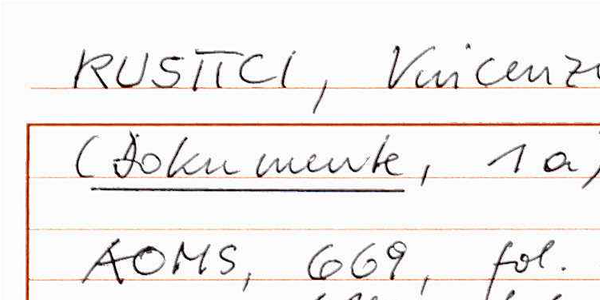 RUSTICI, Vincenzo
(Dokumente, 1a)
AOMS, 669, fol.